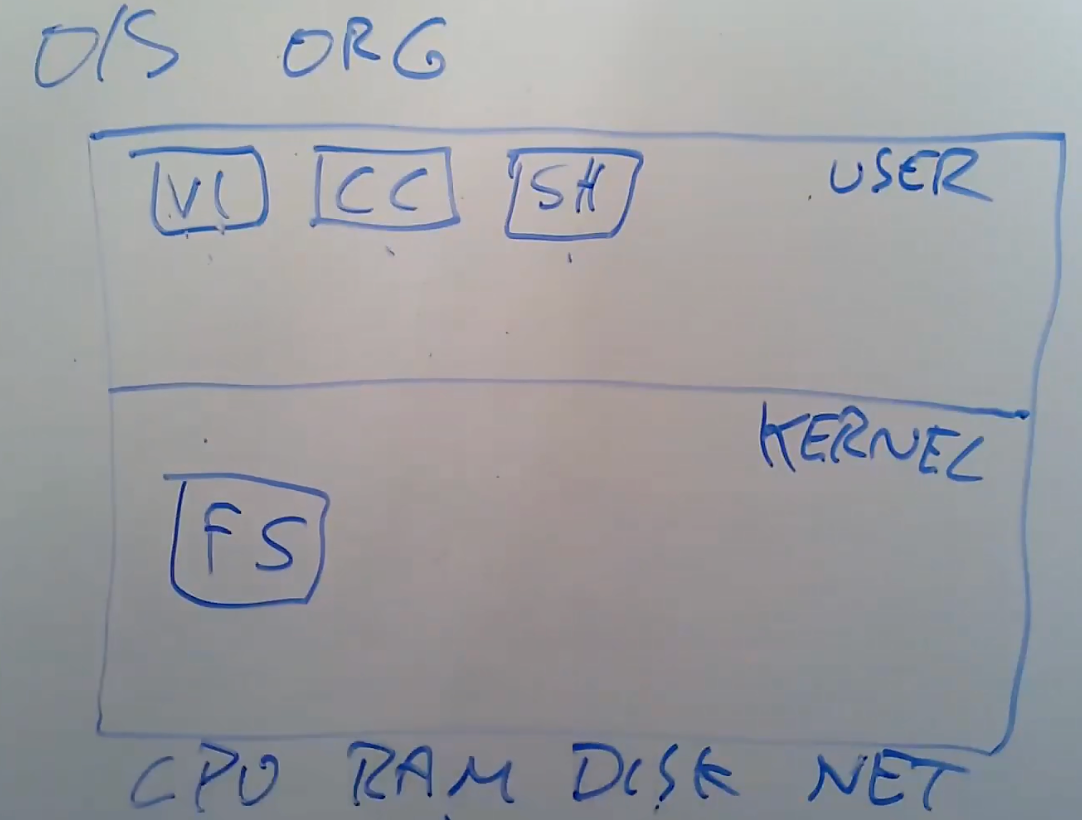 O/S ORG
VI CC SH USER
KERNEL
FS
CPU RAM DISK NET